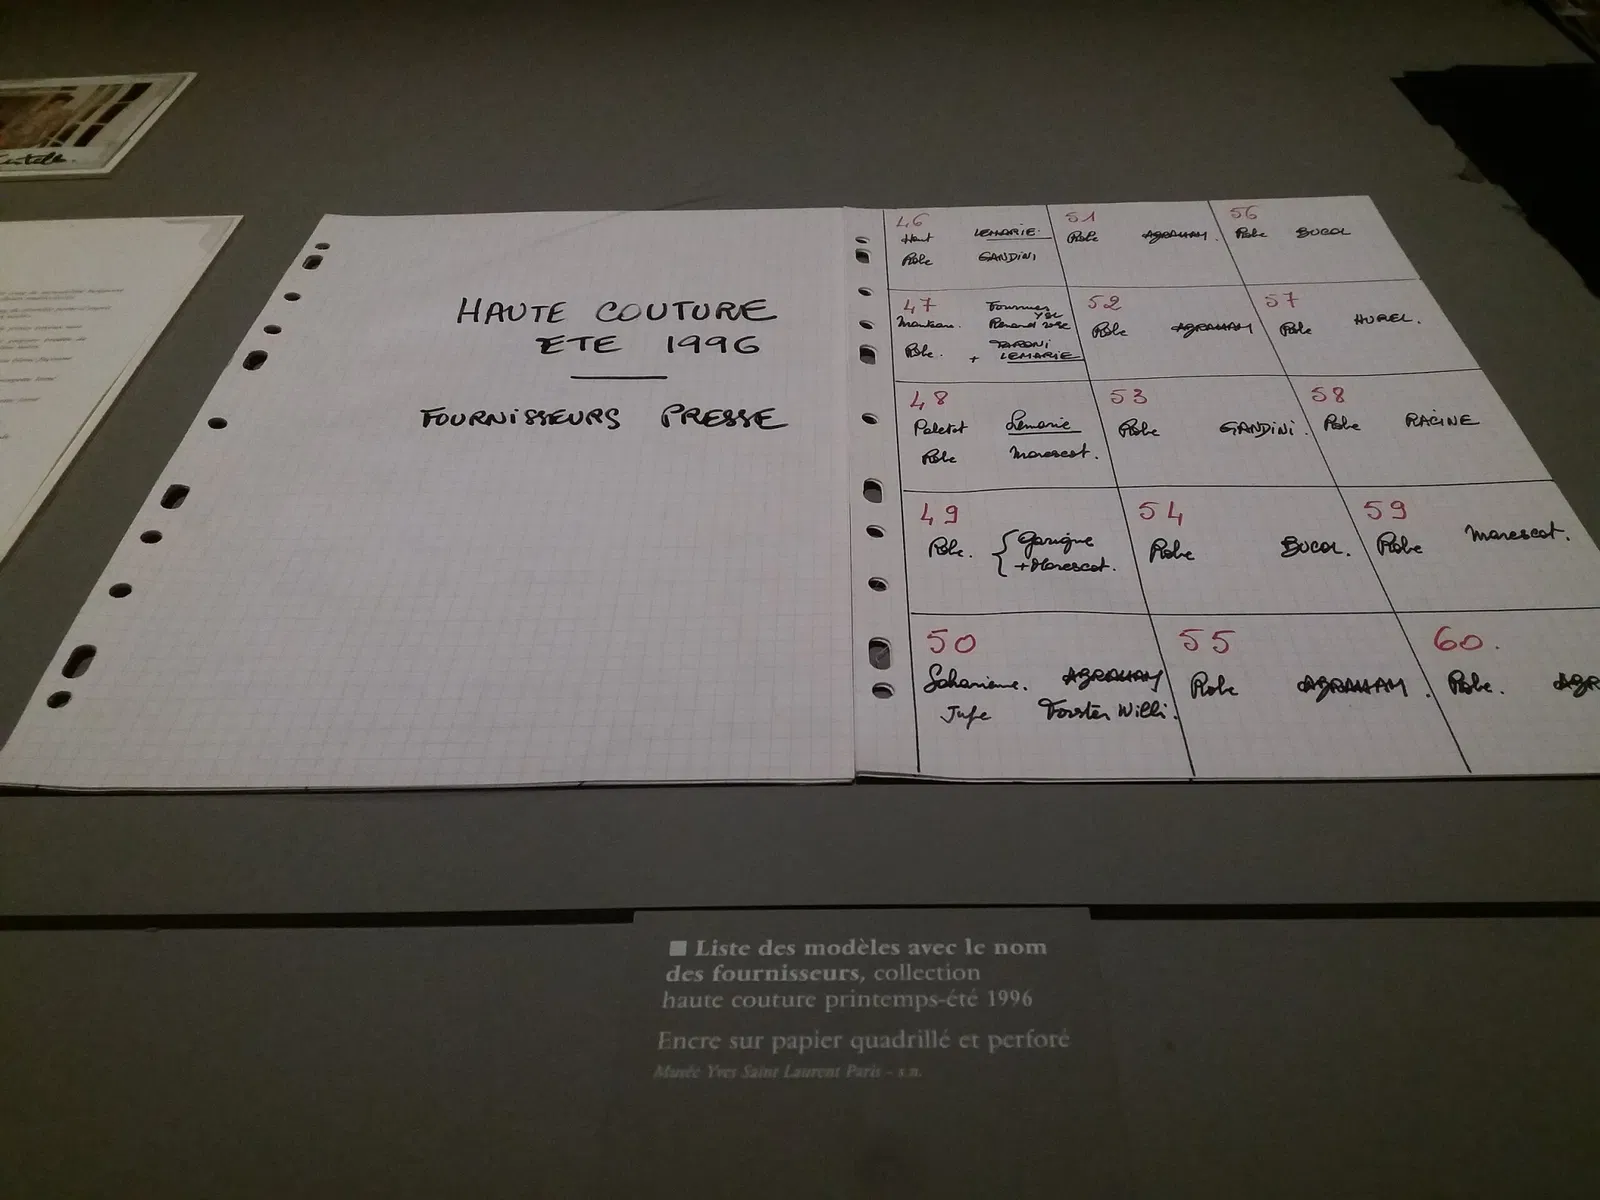 HAUTE COUTURE
ETE 1996
FOURNISSEURS PRESSE
46
Haut LEMARIE.
Robe GANDINI
47
Manteau. Fourrures YSL
Renard rose
Robe. TARONI
+ LEMARIE
48
Paletot Lemarie
Robe Marescot.
49
Robe. { Garigue
+ Marescot.
50
Saharienne. ABRAHAM
Jupe Forster Willi.
51
Robe ABRAHAM.
52
Robe ABRAHAM
53
Robe GANDINI.
54
Robe BUCOL.
55
Robe ABRAHAM.
56
Robe BUCOL
57
Robe HUREL.
58
Robe RACINE
59
Robe Marescot.
60.
Robe. ABR
■ Liste des modèles avec le nom
des fournisseurs, collection
haute couture printemps-été 1996
Encre sur papier quadrillé et perforé
Musée Yves Saint Laurent Paris – s.n.